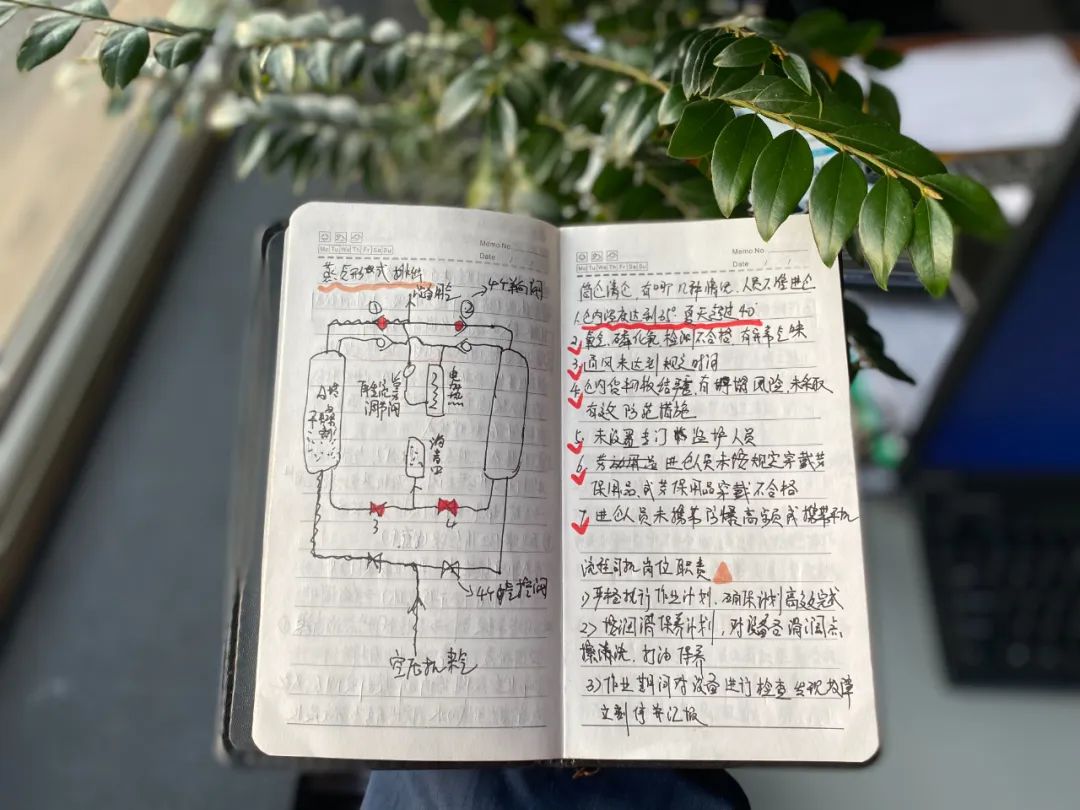 Mo Tu We Th Fr Sa Su
Memo No.
Date / /
去用气
4个单向阀
①
②
再生流量
调节阀
电加热
消音器
3
4
4个气控阀
空压机来气
Mo Tu We Th Fr Sa Su
Memo No.
Date / /
筒仓清仓,有哪几种情况,人员不准进仓
1.仓内温度达到35°夏天超过40°
2.氧气,磷化氢检测不合格,有异常气味
3.通风未达到规定时间
4.仓内货物板结,有坍塌风险,未采取
有效防范措施
5.未设置专门监护人员
6.进仓人员未按规定穿戴劳
保用品,或劳保用品穿戴不合格
7.进仓人员未携带防爆高频或携带手机
流程司机岗位职责
1>严格执行作业计划,确保计划高效完成
2>按润滑保养计划,对设备各润滑点
擦清洗,打油保养
3>作业期间对设备进行检查发现故障
立刻停并汇报